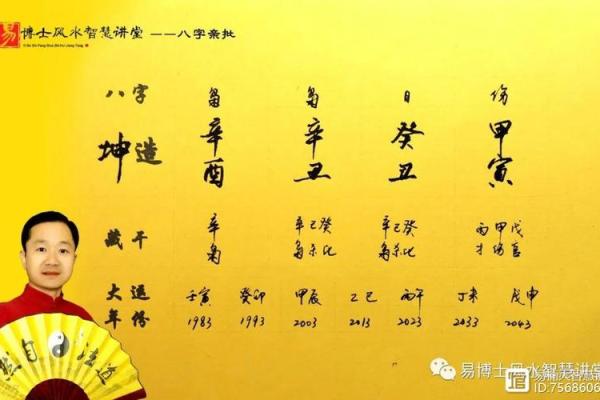 易 博士风水智慧讲堂 ——八字亲批
八字 枭 枭 日 伤
坤造 辛酉 辛丑 癸丑 甲寅
藏干 辛 辛己癸 辛己癸 丙甲戊
枭 枭杀比 枭杀比 才伤官
大运 壬寅 癸卯 甲辰 乙巳 丙午 丁未 戊申
年份 1983 1993 2003 2013 2023 2033 2043
自 法道
易博士风水智慧讲堂
ID:7568606